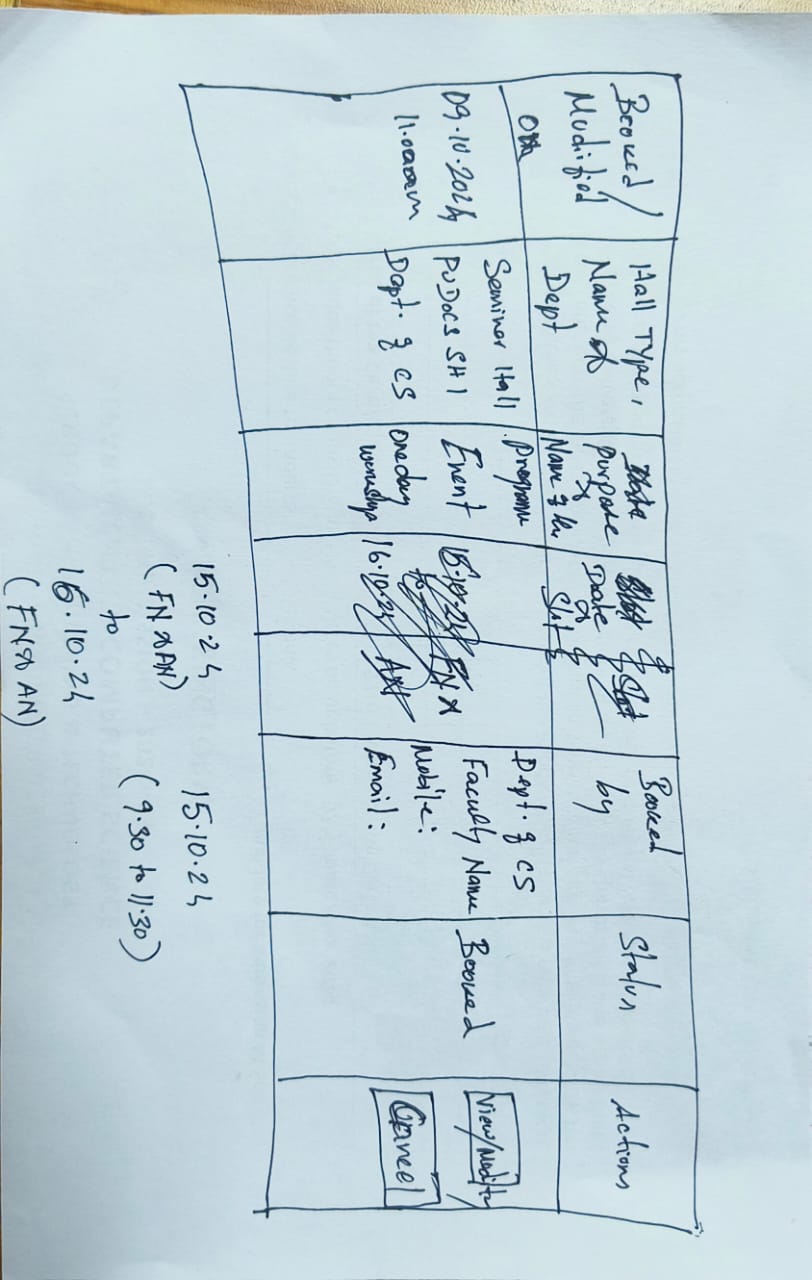 Booked/
Modified
on
Hall Type,
Name &
Dept
purpose
&
Name of the
programme
Date
&
Slot
Slot
Booked
by
Status
Actions
09.10.2024
11.00am
Seminar Hall
PUDOCS SH1
Dept. of CS
Event
one day
workshop
15.10.24
to
16.10.24
FN &
AN
Dept. of CS
Faculty Name
Mobile:
Email:
Booked
View/Modify
Cancel
15.10.24
(FN & AN)
to
16.10.24
(FN & AN)
15.10.24
(9.30 to 11.30)